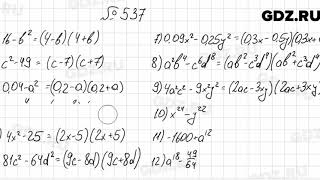 GDZ.RU
№537
16-b²=(4-b)(4+b)
c²-49=(c-7)(c+7)
0,04-a²=(0,2-a)(0,2+a)
4x²-25=(2x-5)(2x+5)
81c²-64d²=(9c-8d)(9c+8d)
7) 0,09x²-0,25y²=(0,3x-0,5y)(0,3x+
8) a²b⁴-c⁶d⁸=(ab²-c³d⁴)(ab²+c³d⁴)
9) 4a²c²-9x²y²=(2ac-3xy)(2ac+3xy)
10) x²⁴-y²²
11) -1600+a¹²
12) a¹⁸-49/64
GDZ.RU